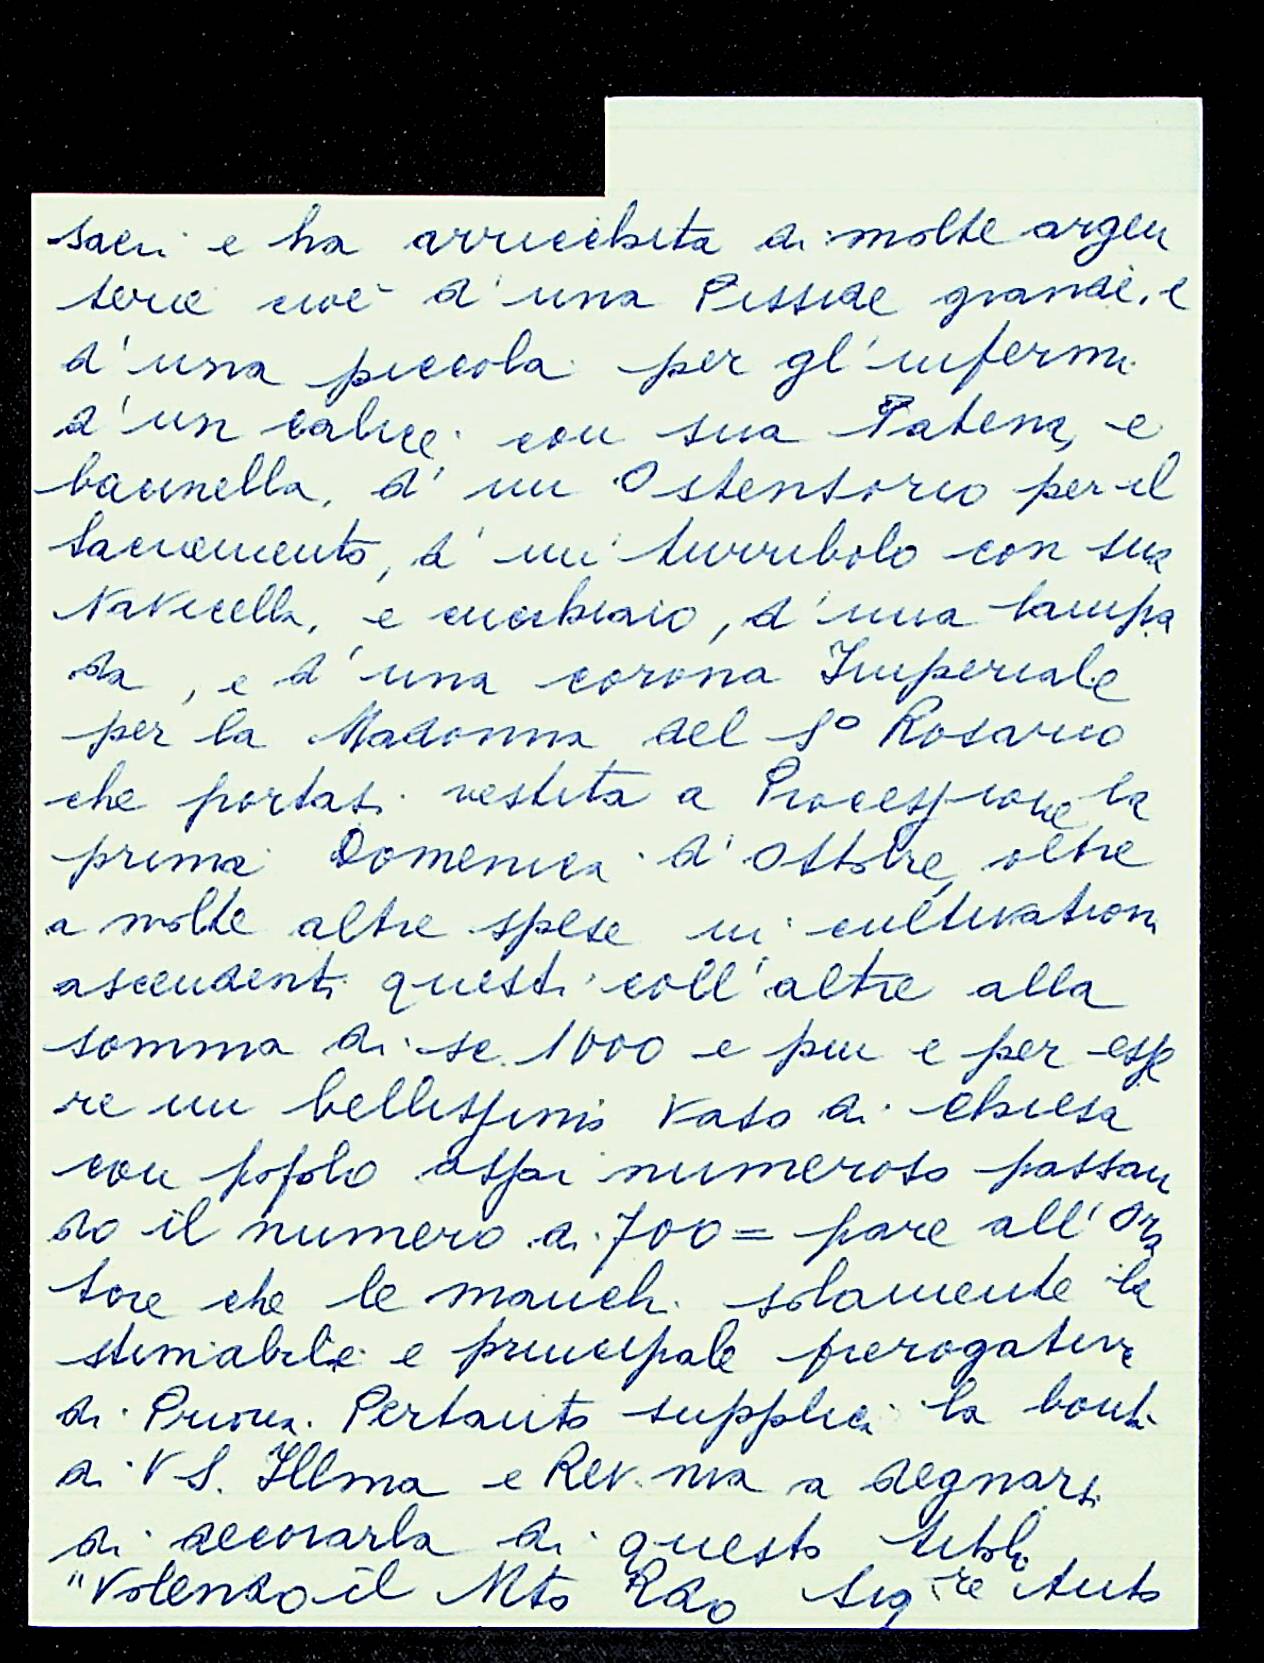 sacri e ha arricchita di molte argen
terie cioè d'una Pisside grande, e
d'una piccola per gl'infermi
d'un calice con sua Patena, e
bacinella, d'un Ostensorio per il
Sacramento, d'un turribolo con sua
Navicella, e cucchiaio, d'una lampa
da, e d'una corona Imperiale
per la Madonna del S° Rosario
che portasi vestita a Processione la
prima Domenica d'Ottobre, oltre
a molte altre spese in cultivationi
ascendenti questi coll'altre alla
somma di sc. 1000 e piu e per esse
re un bellissimo vaso di Chiesa
con popolo assai numeroso passan
do il numero di 700 = pare all'Ora
tore che le manchi solamente la
stimabile e principale prerogativa
di Prioria. Pertanto supplica la bontà
di V S. Illma e Rev.ma a degnarsi
di decorarla di questo titolo
"Volendo il Mto Rdo Sig.re Anto